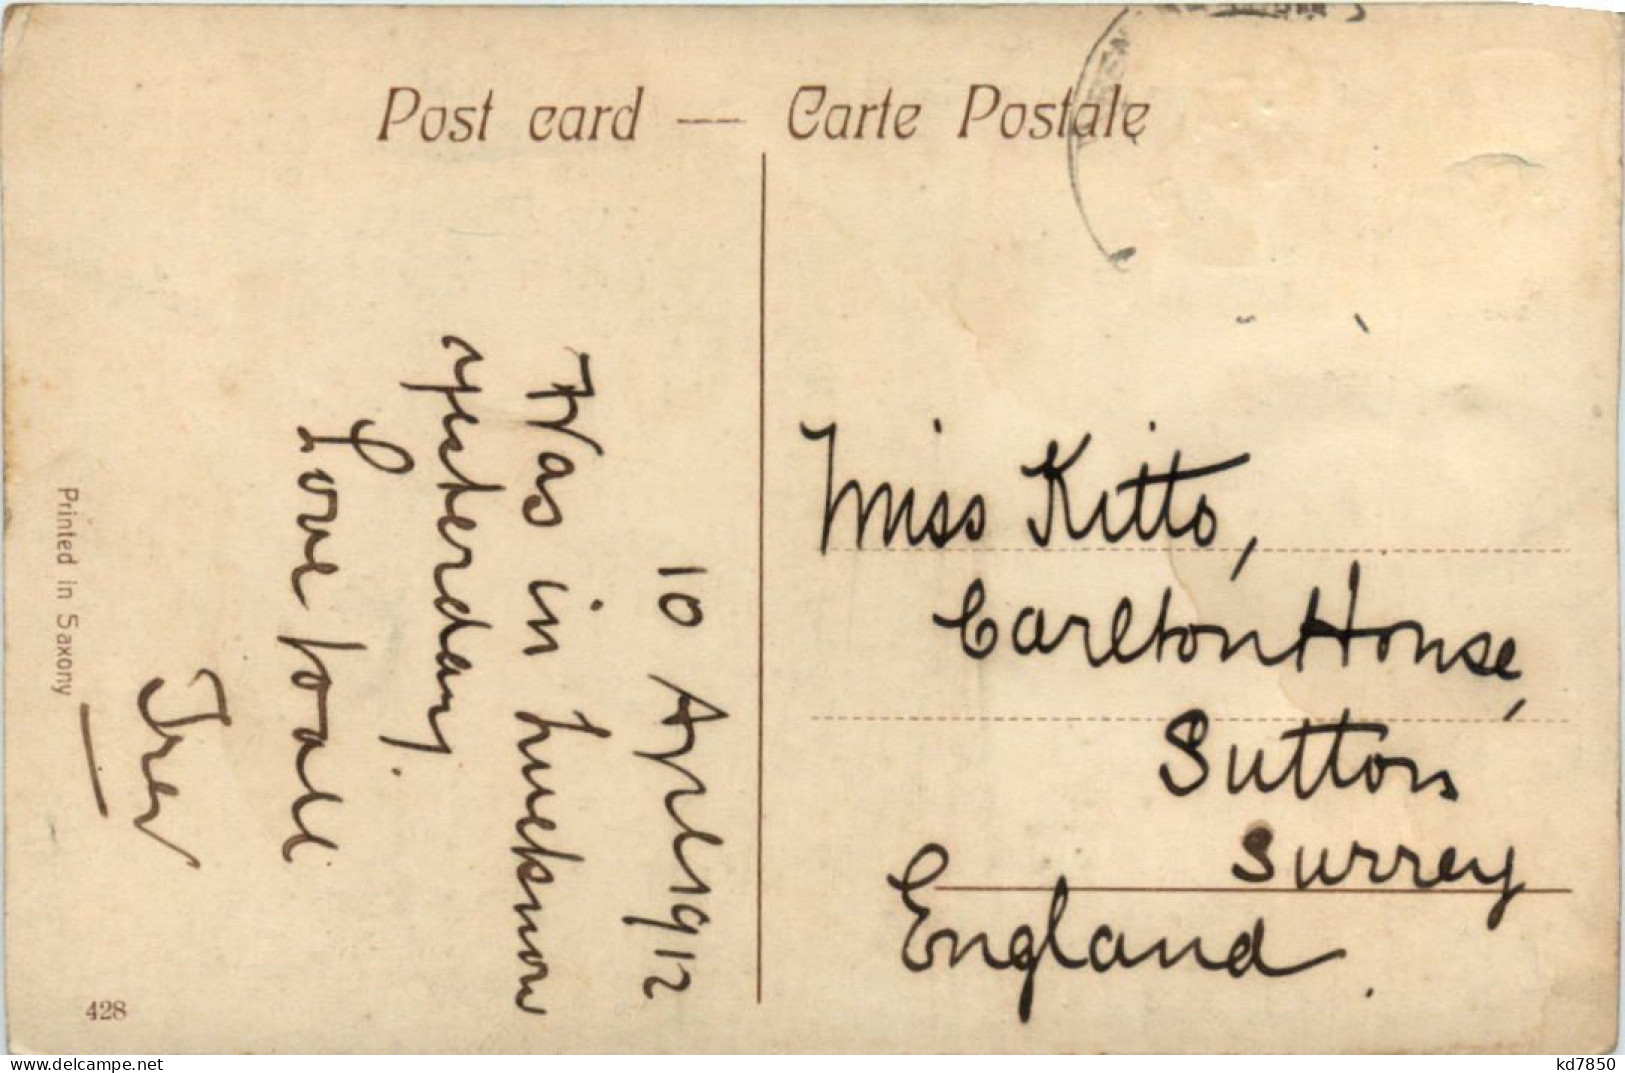 Post card — Carte Postale
10 April 1912
Was in Lucknow
yesterday.
Love to all
Miss Kitto,
Carlton House,
Sutton
Surrey
England.
Printed in Saxony
428
www.delcampe.net
kd7850